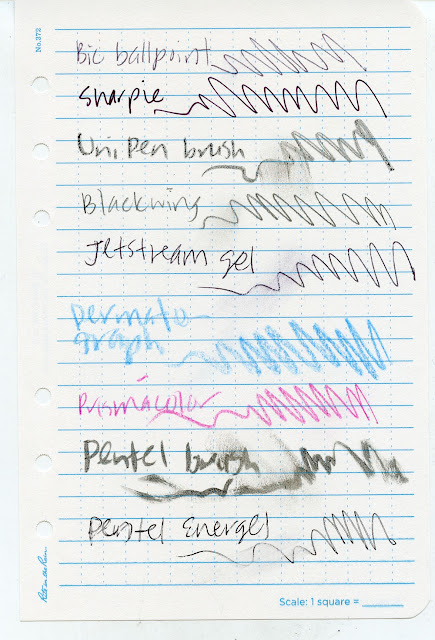 No. 372
Bic ballpoint
Sharpie
Uni Pen brush
Blackwing
Jetstream gel
Dermato-
graph
Prismacolor
Pentel brush
Pentel Energel
Rite in the Rain
Scale: 1 square =